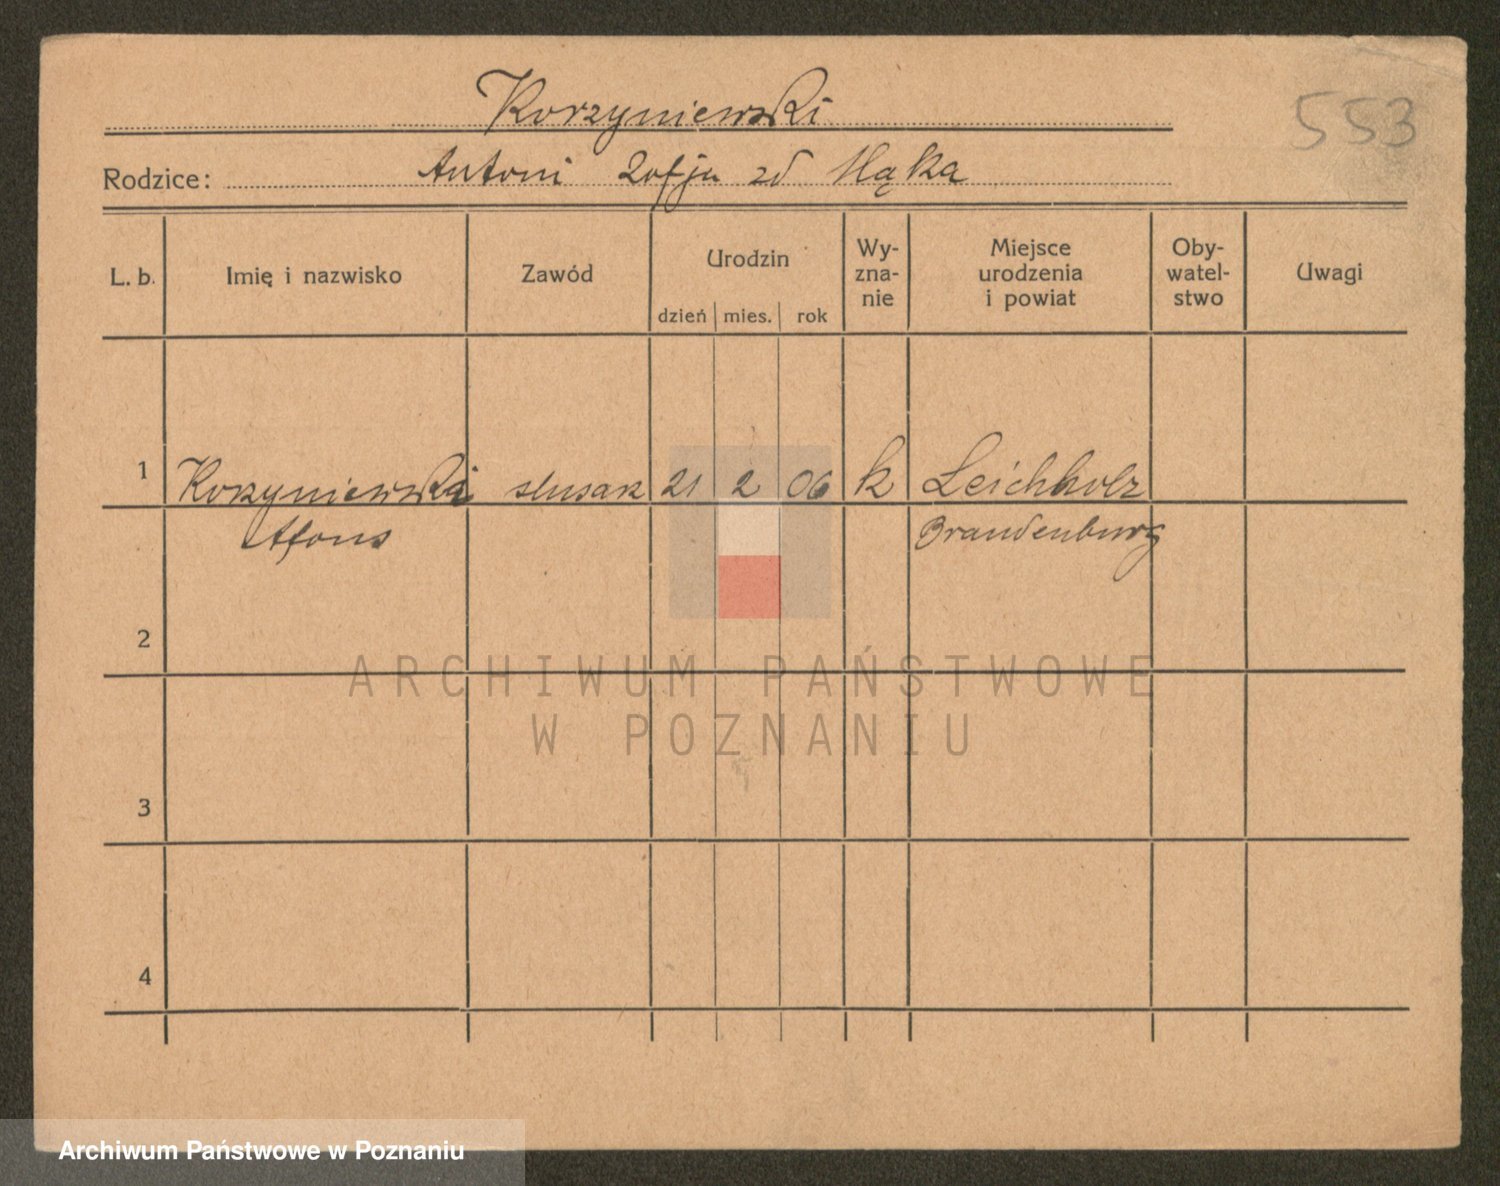 Korzyniewski
553
Rodzice: Antoni Zofja zd
L. b. Imię i nazwisko Zawód Urodzin dzień mies. rok Wy-zna-nie Miejsce urodzenia i powiat Oby-watel-stwo Uwagi
1 Korzyniewski ślusarz 21 2 06 k Leichholz
Alfons Brandenburg
2
ARCHIWUM PAŃSTWOWE
W POZNANIU
3
4
Archiwum Państwowe w Poznaniu